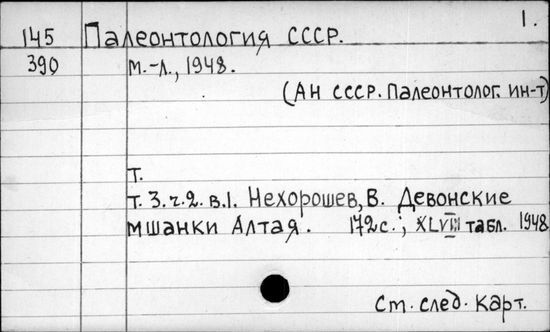 1.
145 Палеонтология СССР.
390 М.-Л., 1948.
(АН СССР. Палеонтолог. ин-т)
Т.
Т. 3. ч. 2. в. 1. Нехорошев, В. Девонские
мшанки Алтая. 172 с.; XLVIII табл. 1948
См. след. карт.